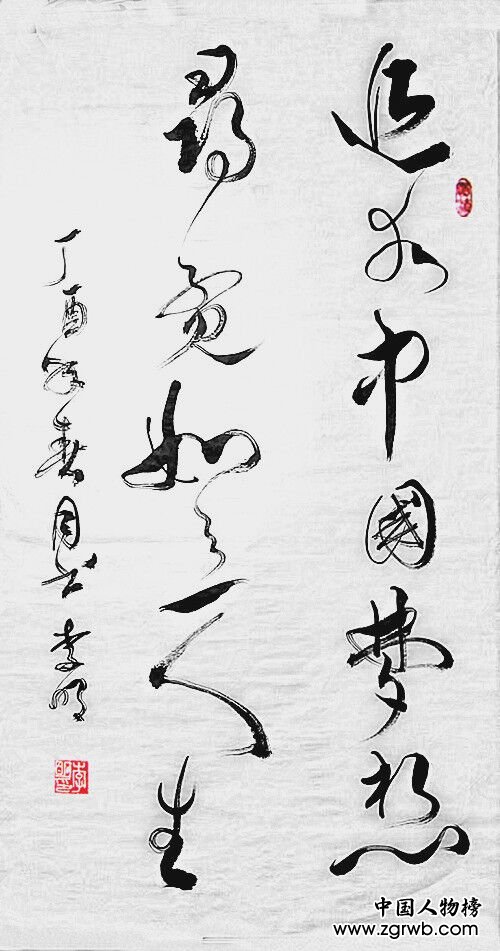 追求中國夢想
尋覓如意人生
丁酉年春月书 李明
中国人物榜
www.zgrwb.com